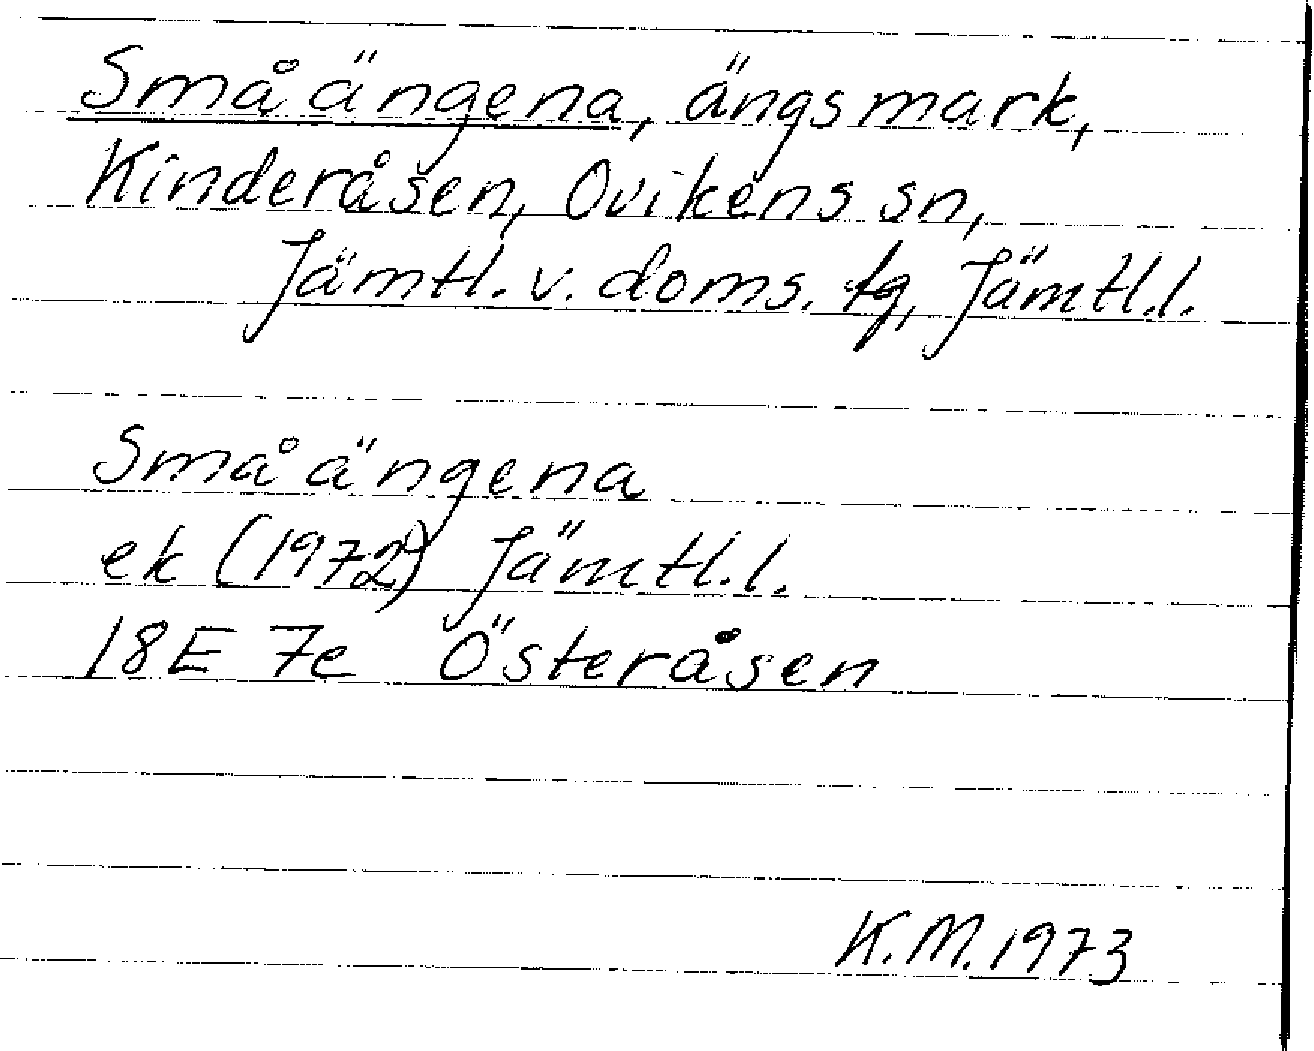 Småängena, ängsmark,
Kinderåsen, Ovikens sn,
Jämtl. v. doms. tg, Jämtl.l.
Småängena
ek (1972) Jämtl.l.
18E 7e Österåsen
K.M. 1973